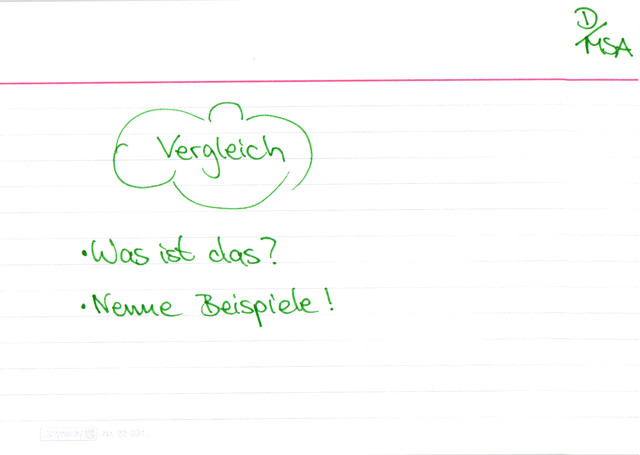 D/MSA
Vergleich
• Was ist das?
• Nenne Beispiele!